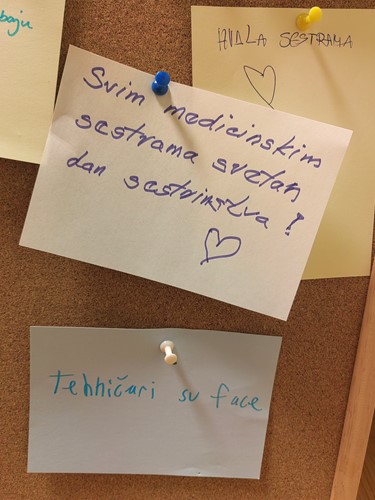 baju
HVALA SESTRAMA
Svim medicinskim
sestrama sretan
dan sestrinstva!
Tehničari su face